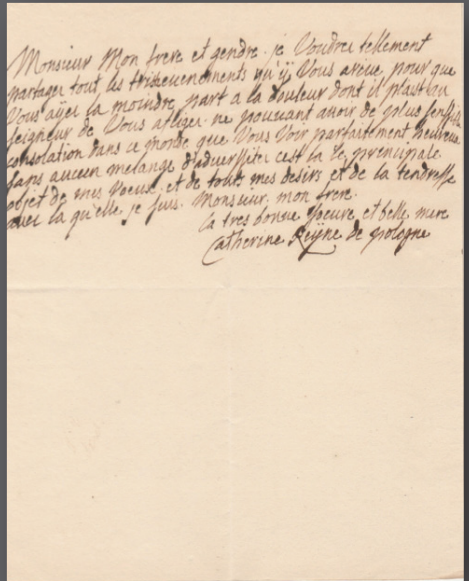 Monsieur Mon frere et gendre. je Voudres tellement
partager tout les tristes evenements qu'ÿ Vous arive, pour que
Vous aÿes la moindre part a la douleur dont il plaist au
seigneur de Vous afliger ne pouvant avoir de plus sensible
consolation dans ce monde que Vous Voir parfaitement heureux
sans aucun melange d'adversites c'est la le prencipale
objet de mes Voeux et de touts mes desirs et de la tendresse
avec la qu'elle je suis. Monsieur mon frere.
la tres bonne soeure et belle mere
Catherine Reÿne de pologne